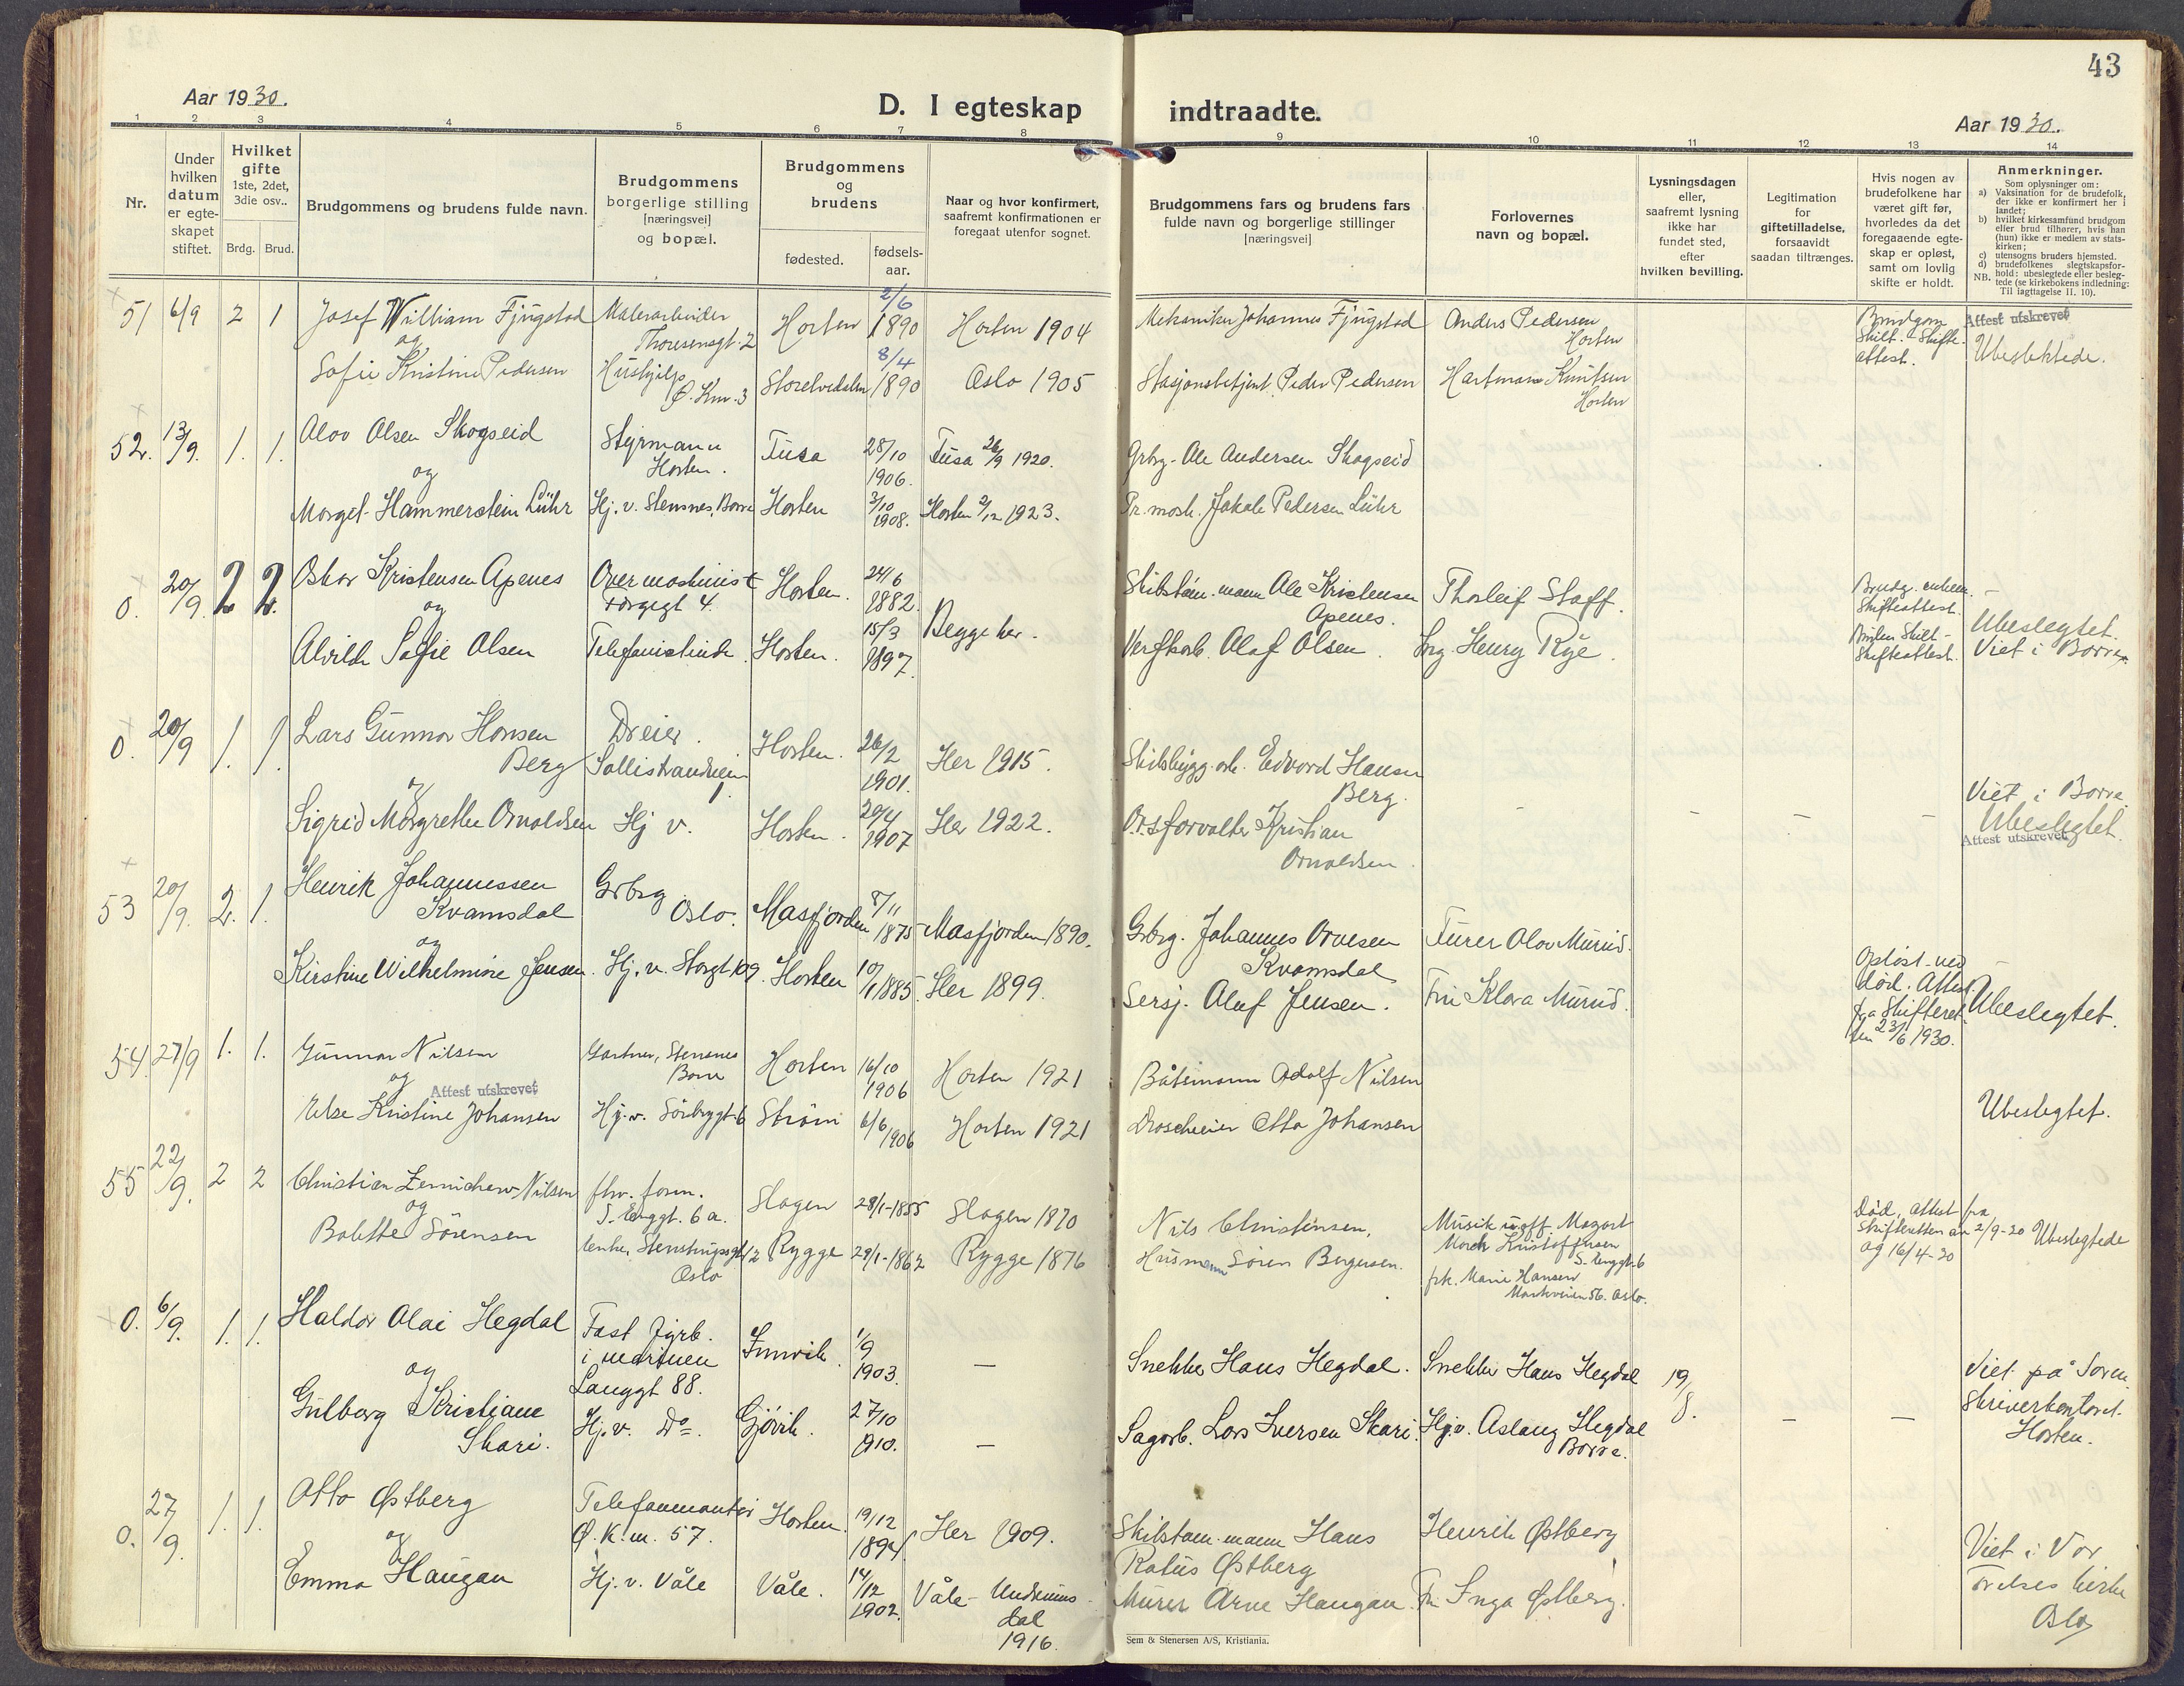 43
Aar 1930.
D. I egteskap indtraadte.
Aar 1930.
1 2 3 4 5 6 7 8 9 10 11 12 13 14
Nr.
Under hvilken datum er egte-skapet stiftet.
Hvilket gifte 1ste, 2det, 3die osv..
Brdg. Brud.
Brudgommens og brudens fulde navn.
Brudgommens borgerlige stilling [næringsvei] og bopæl.
Brudgommens og brudens
fødested. fødsels-aar.
Naar og hvor konfirmert, saafremt konfirmationen er foregaat utenfor sognet.
Brudgommens fars og brudens fars fulde navn og borgerlige stillinger [næringsvei]
Forlovernes navn og bopæl.
Lysningsdagen eller, saafremt lysning ikke har fundet sted, efter hvilken bevilling.
Legitimation for giftetilladelse, forsaavidt saadan tiltrænges.
Hvis nogen av brudefolkene har været gift før, hvorledes da det foregaaende egte-skap er opløst, samt om lovlig skifte er holdt.
Anmerkninger.
Som oplysninger om:
a) Vaksination for de brudefolk, der ikke er konfirmert her i landet;
b) hvilket kirkesamfund brudgom eller brud tilhører, hvis han (hun) ikke er medlem av stats-kirken;
c) utensogns bruders hjemsted.
d) brudefolkenes slegtskapsfor-hold: ubeslegtede eller besleg-tede (se kirkebokens indledning: Til iagttagelse II. 10).
NB.
51 6/9 2 1 Josef William Fjugstad Malerarbeider Thoresensgt. 2 Horten 2/6 1890 Horten 1904 Mekaniker Johannes Fjugstad Anders Pedersen Horten Brudgom Skilt. Skifte-attest. Attest utskrevet
og
Sofie Kristine Pedersen Hushjelp Ø. Km. 3 8/4 1890 Oslo 1905 Stasjonsbetjent Peder Pedersen Hartman Knutsen Horten Ubeslektede.
52. 13/9. 1. 1. Alov Olsen Skogseid Styrmann Horten. Fusa 28/10 1906. Fusa 26/9 1920. Grbr. Ole Andersen Skogseid
og
Marget Hammerstein Lühr Hj. v. Stensnes, Borre Horten 3/10 1908. Horten 2/12 1923. Jakob Pedersen Lühr
0. 20/9. 2 2. Oskar Kristensen Apenes Overmaskinist Torggt 4. Horten. 24/6 1882. Skibstøm.mann Ole Kristensen Apenes. Thorleif Staff. Brudg. enkem. Skifteattest.
og
Alvilde Sofie Olsen Telefonistinde. Horten. 15/3 1897. Begge her. Olaf Olsen. Henry Rye. Bruden Skilt - Skifteattest. Ubeslegtet. Viet i Borre.
0. 20/9 1. 1. Lars Gunnar Hansen Berg Dreier. Sollistrandveien 1. Horten. 26/2 1901. Her 1915. Skibsbygg.arb. Edvard Hansen Berg.
og
Sigrid Margrethe Arnoldsen Hj v. Horten. 20/4 1907 Her 1922. Kristian Arnoldsen. - - - - Viet i Borre. Ubeslegtet. Attest utskrevet
53 20/9. 2. 1. Henrik Johannessen Kvamsdal Grbrg Oslo. Masfjorden 7/11 1875 Masfjorden 1890. Grbrg. Johannes Arnesen Kvamsdal Furer Olov Murud.
og
Kirstine Wilhelmine Jensen. Hj. v. Storgt 109. Horten 10/1 1885. Her 1899. Sersj. Oluf Jensen. Fru Klara Murud. Opløst ved død. Attest fra Skifteret den 23/6 1930. Ubeslegtet.
54. 27/9 1. 1. Gunnar Nilsen Gartner, Stensnes Borre Horten 16/10 1906 Horten 1921 Båtsmann Adolf Nilsen
og Attest utskrevet
Else Kristine Johansen Hj.v. Strøm 6/6 1906 Horten 1921 Droscheeier Otto Johansen Ubeslegtet.
55 22/9. 2 2 Christian Nilsen fhv. form. S. langgt. 6 a. Slagen 28/1-1855 Slagen 1870 Nils Christensen, Musik uoff. Mozart Kristoffersen S. langgt. 6
og
Bolette Sørensen Stenstrupsgt 12 Oslo Rygge 29/1-1862 Rygge 1876 Husmann Søren Bergersen. frk. Marie Hansen Markveien 56. Oslo. Død, attest fra skifteretten av 2/9-30 og 16/4-30 Ubeslegtede
0. 6/9. 1. 1. Haldor Olai Hegdal Fast fyrb. i marinen Langgt 88. Innvik. 1/9 1903. — Snekker Hans Hegdal. Snekker Hans Hegdal 19/8.
og
Gulborg Kristiane Skari. Hj.v. Do. Gjøvik. 27/10 1910. — Sagarb. Lars Iversen Skari. Hj.v. Aslaug Hegdal Borre. - — Viet på Soren-skriverkontoret. Horten.
0. 27/9. 1. 1. Otto Østberg Telefonmontør Ø. K. m. 57. Horten. 19/12 1894 Her 1909. Skibstøm.mann Hans Ratius Østberg Henrik Østberg
og
Emma Haugan Hj. v. Våle Våle. 14/12 1902. Våle - Undrumsdal 1916. Murer Arne Haugan Fr. Inga Østberg. Viet i Vor Frelses kirke Oslo
Sem & Stenersen A/S, Kristiania.